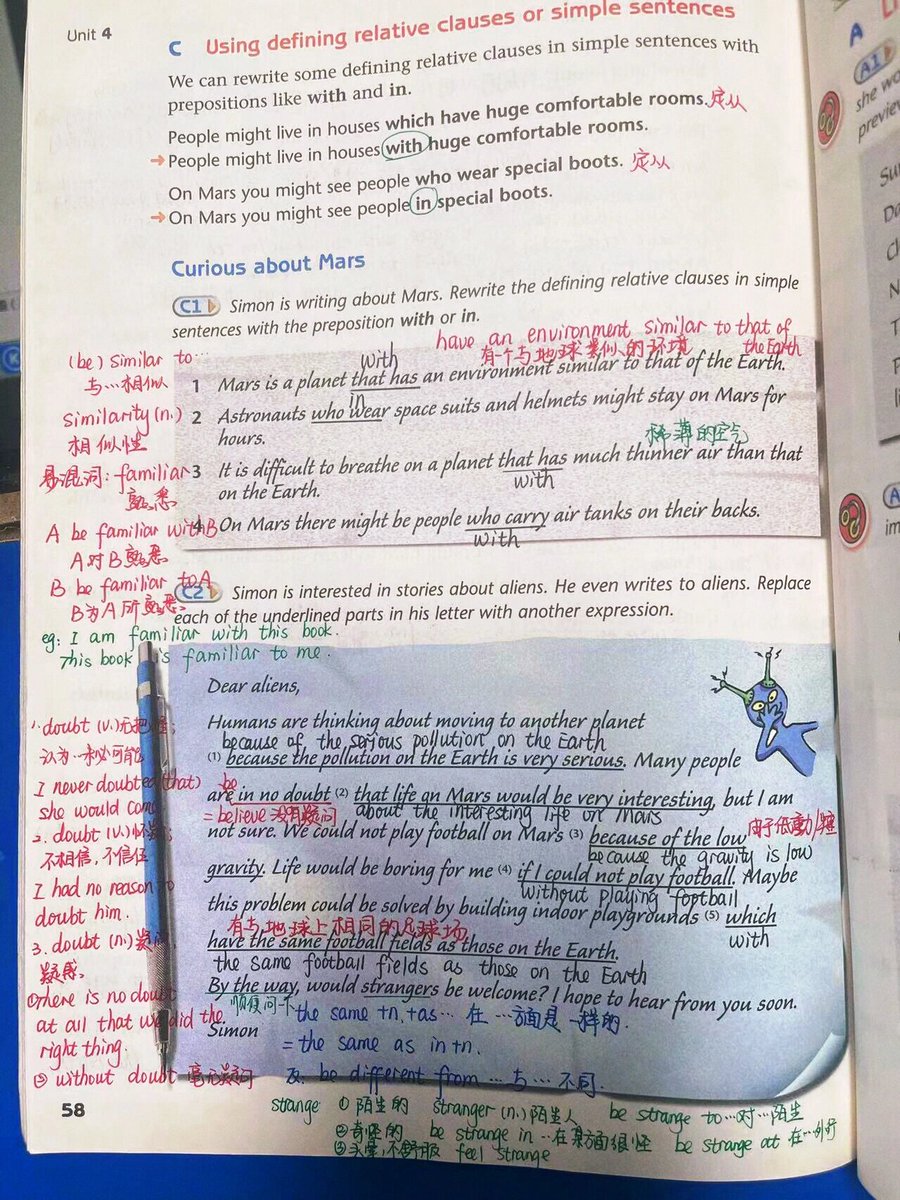 Unit 4
C Using defining relative clauses or simple sentences
We can rewrite some defining relative clauses in simple sentences with
prepositions like with and in.
People might live in houses which have huge comfortable rooms. 定从
→ People might live in houses with huge comfortable rooms.
On Mars you might see people who wear special boots. 定从
→ On Mars you might see people in special boots.
Curious about Mars
C1 Simon is writing about Mars. Rewrite the defining relative clauses in simple
sentences with the preposition with or in.
have an environment similar to that of
the Earth
有个与地球类似的环境
with
1 Mars is a planet that has an environment similar to that of the Earth.
in
2 Astronauts who wear space suits and helmets might stay on Mars for
hours.
稀薄的空气
3 It is difficult to breathe on a planet that has much thinner air than that
with
on the Earth.
4 On Mars there might be people who carry air tanks on their backs.
with
(be) similar to…
与…相似
similarity (n.)
相似性
易混词: familiar
熟悉
A be familiar with B
A对B熟悉
B be familiar to A
B为A所熟悉。
eg: I am familiar with this book.
This book is familiar to me.
C2 Simon is interested in stories about aliens. He even writes to aliens. Replace
each of the underlined parts in his letter with another expression.
Dear aliens,
Humans are thinking about moving to another planet
because of the serious pollution on the Earth
(1) because the pollution on the Earth is very serious. Many people
be
are in no doubt (2) that life on Mars would be very interesting, but I am
= believe 没有疑问
about the interesting life on Mars
not sure. We could not play football on Mars (3) because of the low
because the gravity is low
gravity. Life would be boring for me (4) if I could not play football. Maybe
without playing football
this problem could be solved by building indoor playgrounds (5) which
with
有与地球上相同的足球场
have the same football fields as those on the Earth.
the same football fields as those on the Earth
By the way, would strangers be welcome? I hope to hear from you soon.
顺便问一下
the same +n. +as… 在…方面是一样的.
Simon
= the same as in +n.
反: be different from … 与…不同.
1. doubt (v.)
I never doubted (that)
she would
2. doubt (v.)
不相信,不信任
I had no reason to
doubt him.
3. doubt (n.)
疑惑。
① there is no doubt
at all that we did the
right thing.
② without doubt 毫无疑问
58
strange ① 陌生的 stranger (n.) 陌生人 be strange to…对…陌生
② 奇怪的 be strange in …在某方面很怪 be strange at 在…外行
③ 头晕,不舒服 feel strange
A
A1
she wo
preview